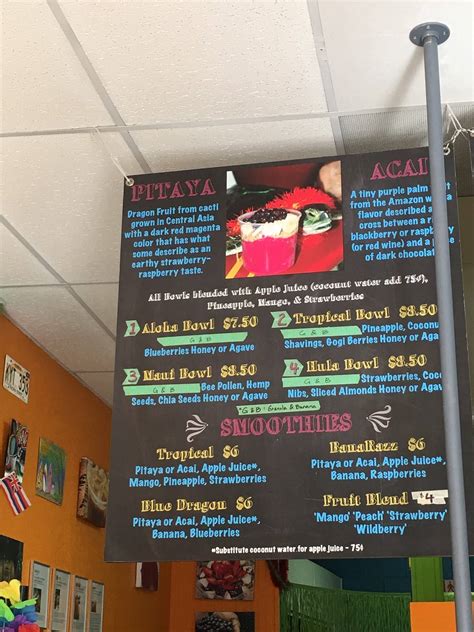 PITAYA
Dragon Fruit from cacti
grown in Central Asia
with a dark red magenta
color that has what
some describe as an
earthy strawberry-
raspberry taste.
ACAI
A tiny purple palm
from the Amazon
flavor described a
cross between a
blackberry or
(or red wine) and a
of dark chocolat
All Bowls blended with Apple Juice (coconut water add 75¢),
Pineapple, Mango, & Strawberries
1 Aloha Bowl $7.50
G & B
Blueberries Honey or Agave
2 Tropical Bowl $8.50
G & B Pineapple, Coconu
Shavings, Gogi Berries Honey or Agav
3 Maui Bowl $8.50
G & B Bee Pollen, Hemp
Seeds, Chia Seeds Honey or Agave
4 Hula Bowl $8.50
G & B Strawberries, Coc
Nibs, Sliced Almonds Honey or Agav
*G & B : Granola & Banana
SMOOTHIES
Tropical $6
Pitaya or Acai, Apple Juice*,
Mango, Pineapple, Strawberries
BanaRazz $6
Pitaya or Acai, Apple Juice*,
Banana, Raspberries
Blue Dragon $6
Pitaya or Acai, Apple Juice*,
Banana, Blueberries
Fruit Blend $4
'Mango' 'Peach' 'Strawberry'
'Wildberry'
*Substitute coconut water for apple juice - 75¢